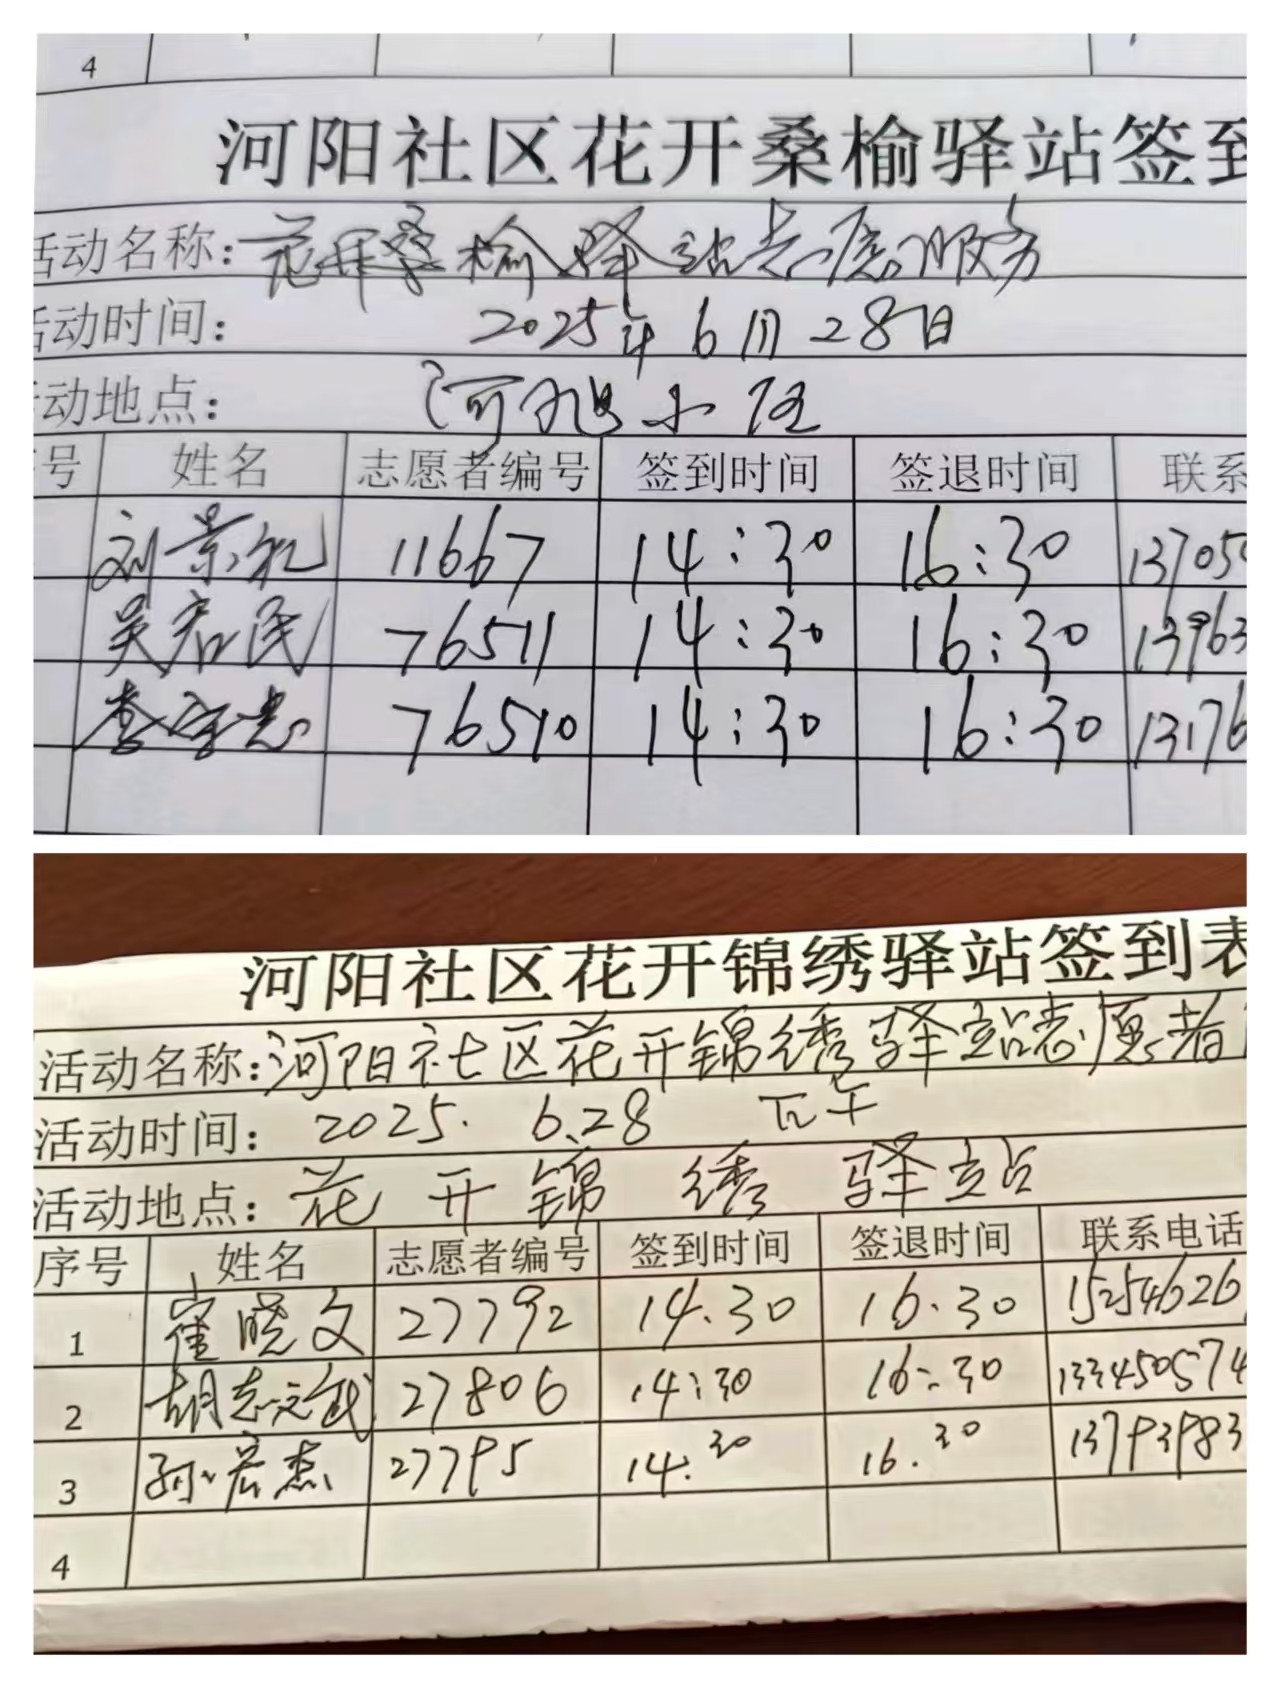 4
河阳社区花开桑榆驿站签到
活动名称：花开桑榆驿站志愿服务
活动时间： 2025年6月28日
活动地点： 河旭小区
号 姓名 志愿者编号 签到时间 签退时间 联系
刘景礼 11667 14:30 16:30 13705
吴宏民 76511 14:30 16:30 13963
李守忠 76510 14:30 16:30 13176
河阳社区花开锦绣驿站签到表
活动名称：河阳社区花开锦绣驿站志愿者
活动时间： 2025. 6.28 下午
活动地点： 花开锦绣驿站
序号 姓名 志愿者编号 签到时间 签退时间 联系电话
1 崔晓文 27792 14.30 16.30 15254626
2 胡志斌 27806 14:30 16:30 133450574
3 孙宏杰 27795 14.30 16.30 13793983
4